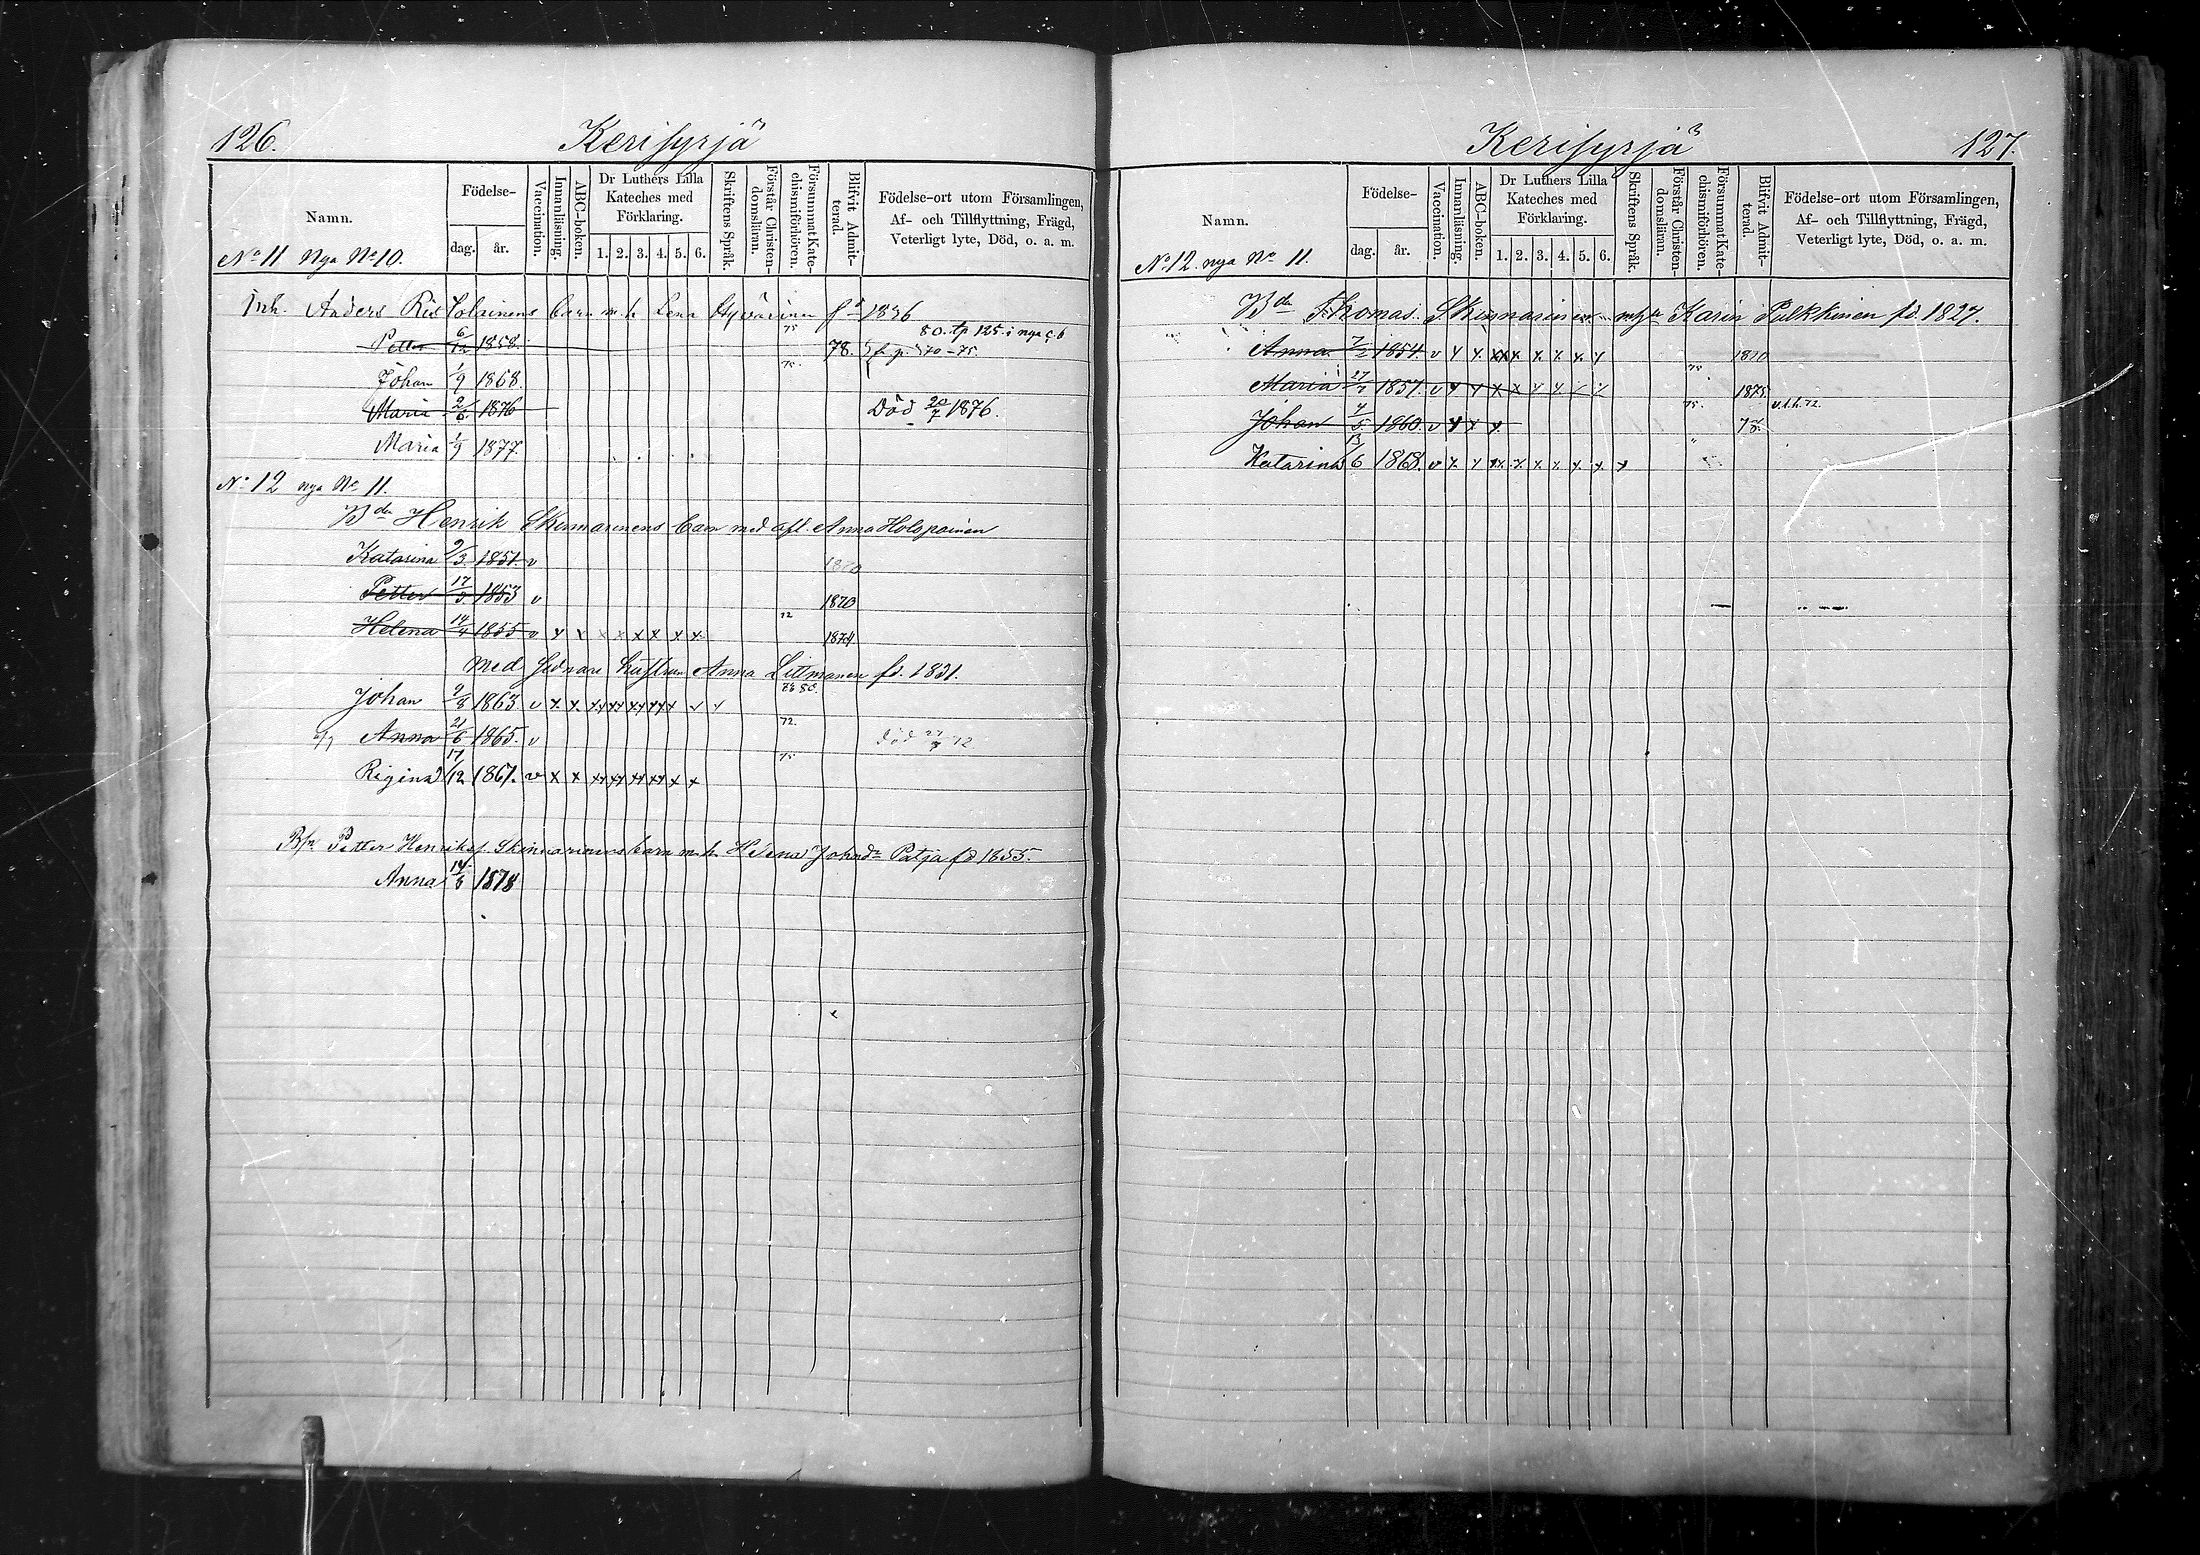 126. Kerisyrjä
Namn. Födelse- dag. år. Vaccination. Innanläsning. ABC-boken. Dr Luthers Lilla Kateches med Förklaring. 1. 2. 3. 4. 5. 6. Skriftens Språk. Förstår Christendomsläran. Försummat Katechismiförhören. Blifvit Admitterad. Födelse-ort utom Församlingen, Af- och Tillflyttning, Frägd, Veterligt lyte, Död, o. a. m.
No 11 Nya No 10.
Inh. Anders Barn m. h. Lena Hyvärinen fd 1836
75 80. tp 125 i nya
Petter 6/12 1858. 78. 70-75.
75.
Johan 1/9 1868.
Maria 2/6 1876 Död 20/7 1876.
Maria 1/9 1877.
No 12 nya No 11.
Bdn Henrik Skinnarinens barn med afl. Anna Holopainen
Katarina 9/3 1851. v 1870
Petter 17/3 1853 v 1870
72
Helena 14/4 1855 v x x x x x x x x 1874
Med sednare hustrun Anna Littmanen fd. 1831.
78 80.
Johan 2/8 1863 v x x xx xx xx xx x x x
72.
Anna 21/6 1865. v Död 27/3 72
75
Regina 17/12 1867. v x x xx xx xx xx x x
Petter Henriksn Skinnarinens barn m. h. Helena Johnsdr Patja fd 1855.
Anna 14/8 1878
Kerisyrjä 127.
Namn. Födelse- dag. år. Vaccination. Innanläsning. ABC-boken. Dr Luthers Lilla Kateches med Förklaring. 1. 2. 3. 4. 5. 6. Skriftens Språk. Förstår Christendomsläran. Försummat Katechismiförhören. Blifvit Admitterad. Födelse-ort utom Församlingen, Af- och Tillflyttning, Frägd, Veterligt lyte, Död, o. a. m.
No 12 nya No 11.
Bdn Thomas Skinnarinen Karin Pulkkinen fd. 1827.
Anna 7/2 1854. v x x xx x x x x x 1870
75
Maria 27/7 1857. v x x x x x x x x 1875
75.
Johan 1/5 1860. v x x x 78.
Katarina 13/6 1868. v x x xx x x x x x x